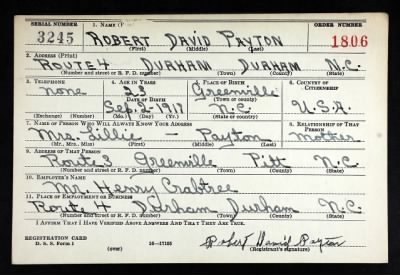 SERIAL NUMBER 1. NAME (P ORDER NUMBER
3245 ROBERT DAVID PAYTON 1806
(First) (Middle) (Last)
2. ADDRESS (Print)
ROUTE 4 DURHAM DURHAM N.C.
(Number and street or R. F. D. number) (Town) (County) (State)
3. TELEPHONE 4. AGE IN YEARS 5. PLACE OF BIRTH 6. COUNTRY OF CITIZENSHIP
none 23 Greenville
DATE OF BIRTH (Town or county)
Sep. 2 1917 N.C. U.S.A.
(Exchange) (Number) (Mo.) (Day) (Yr.) (State or country)
7. NAME OF PERSON WHO WILL ALWAYS KNOW YOUR ADDRESS 8. RELATIONSHIP OF THAT PERSON
Mrs. Lillie — Payton mother
(Mr., Mrs., Miss) (First) (Middle) (Last)
9. ADDRESS OF THAT PERSON
Route 3 Greenville Pitt N.C.
(Number and street or R. F. D. number) (Town) (County) (State)
10. EMPLOYER'S NAME
Mr. Henry Crabtree
11. PLACE OF EMPLOYMENT OR BUSINESS
Route 4 Durham Durham N.C.
(Number and street or R. F. D. number) (Town) (County) (State)
I AFFIRM THAT I HAVE VERIFIED ABOVE ANSWERS AND THAT THEY ARE TRUE.
REGISTRATION CARD
D. S. S. Form 1 (over) 16—17105 Robert David Payton
(Registrant's signature)